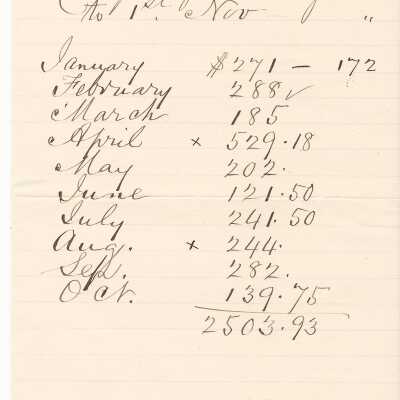 to 1st Nov "
January $271 — 172
February 288 ✓
March 185
April × 529.18
May 202.
June 121.50
July 241.50
Aug. × 244.
Sep. 282.
Oct. 139.75
2503.93